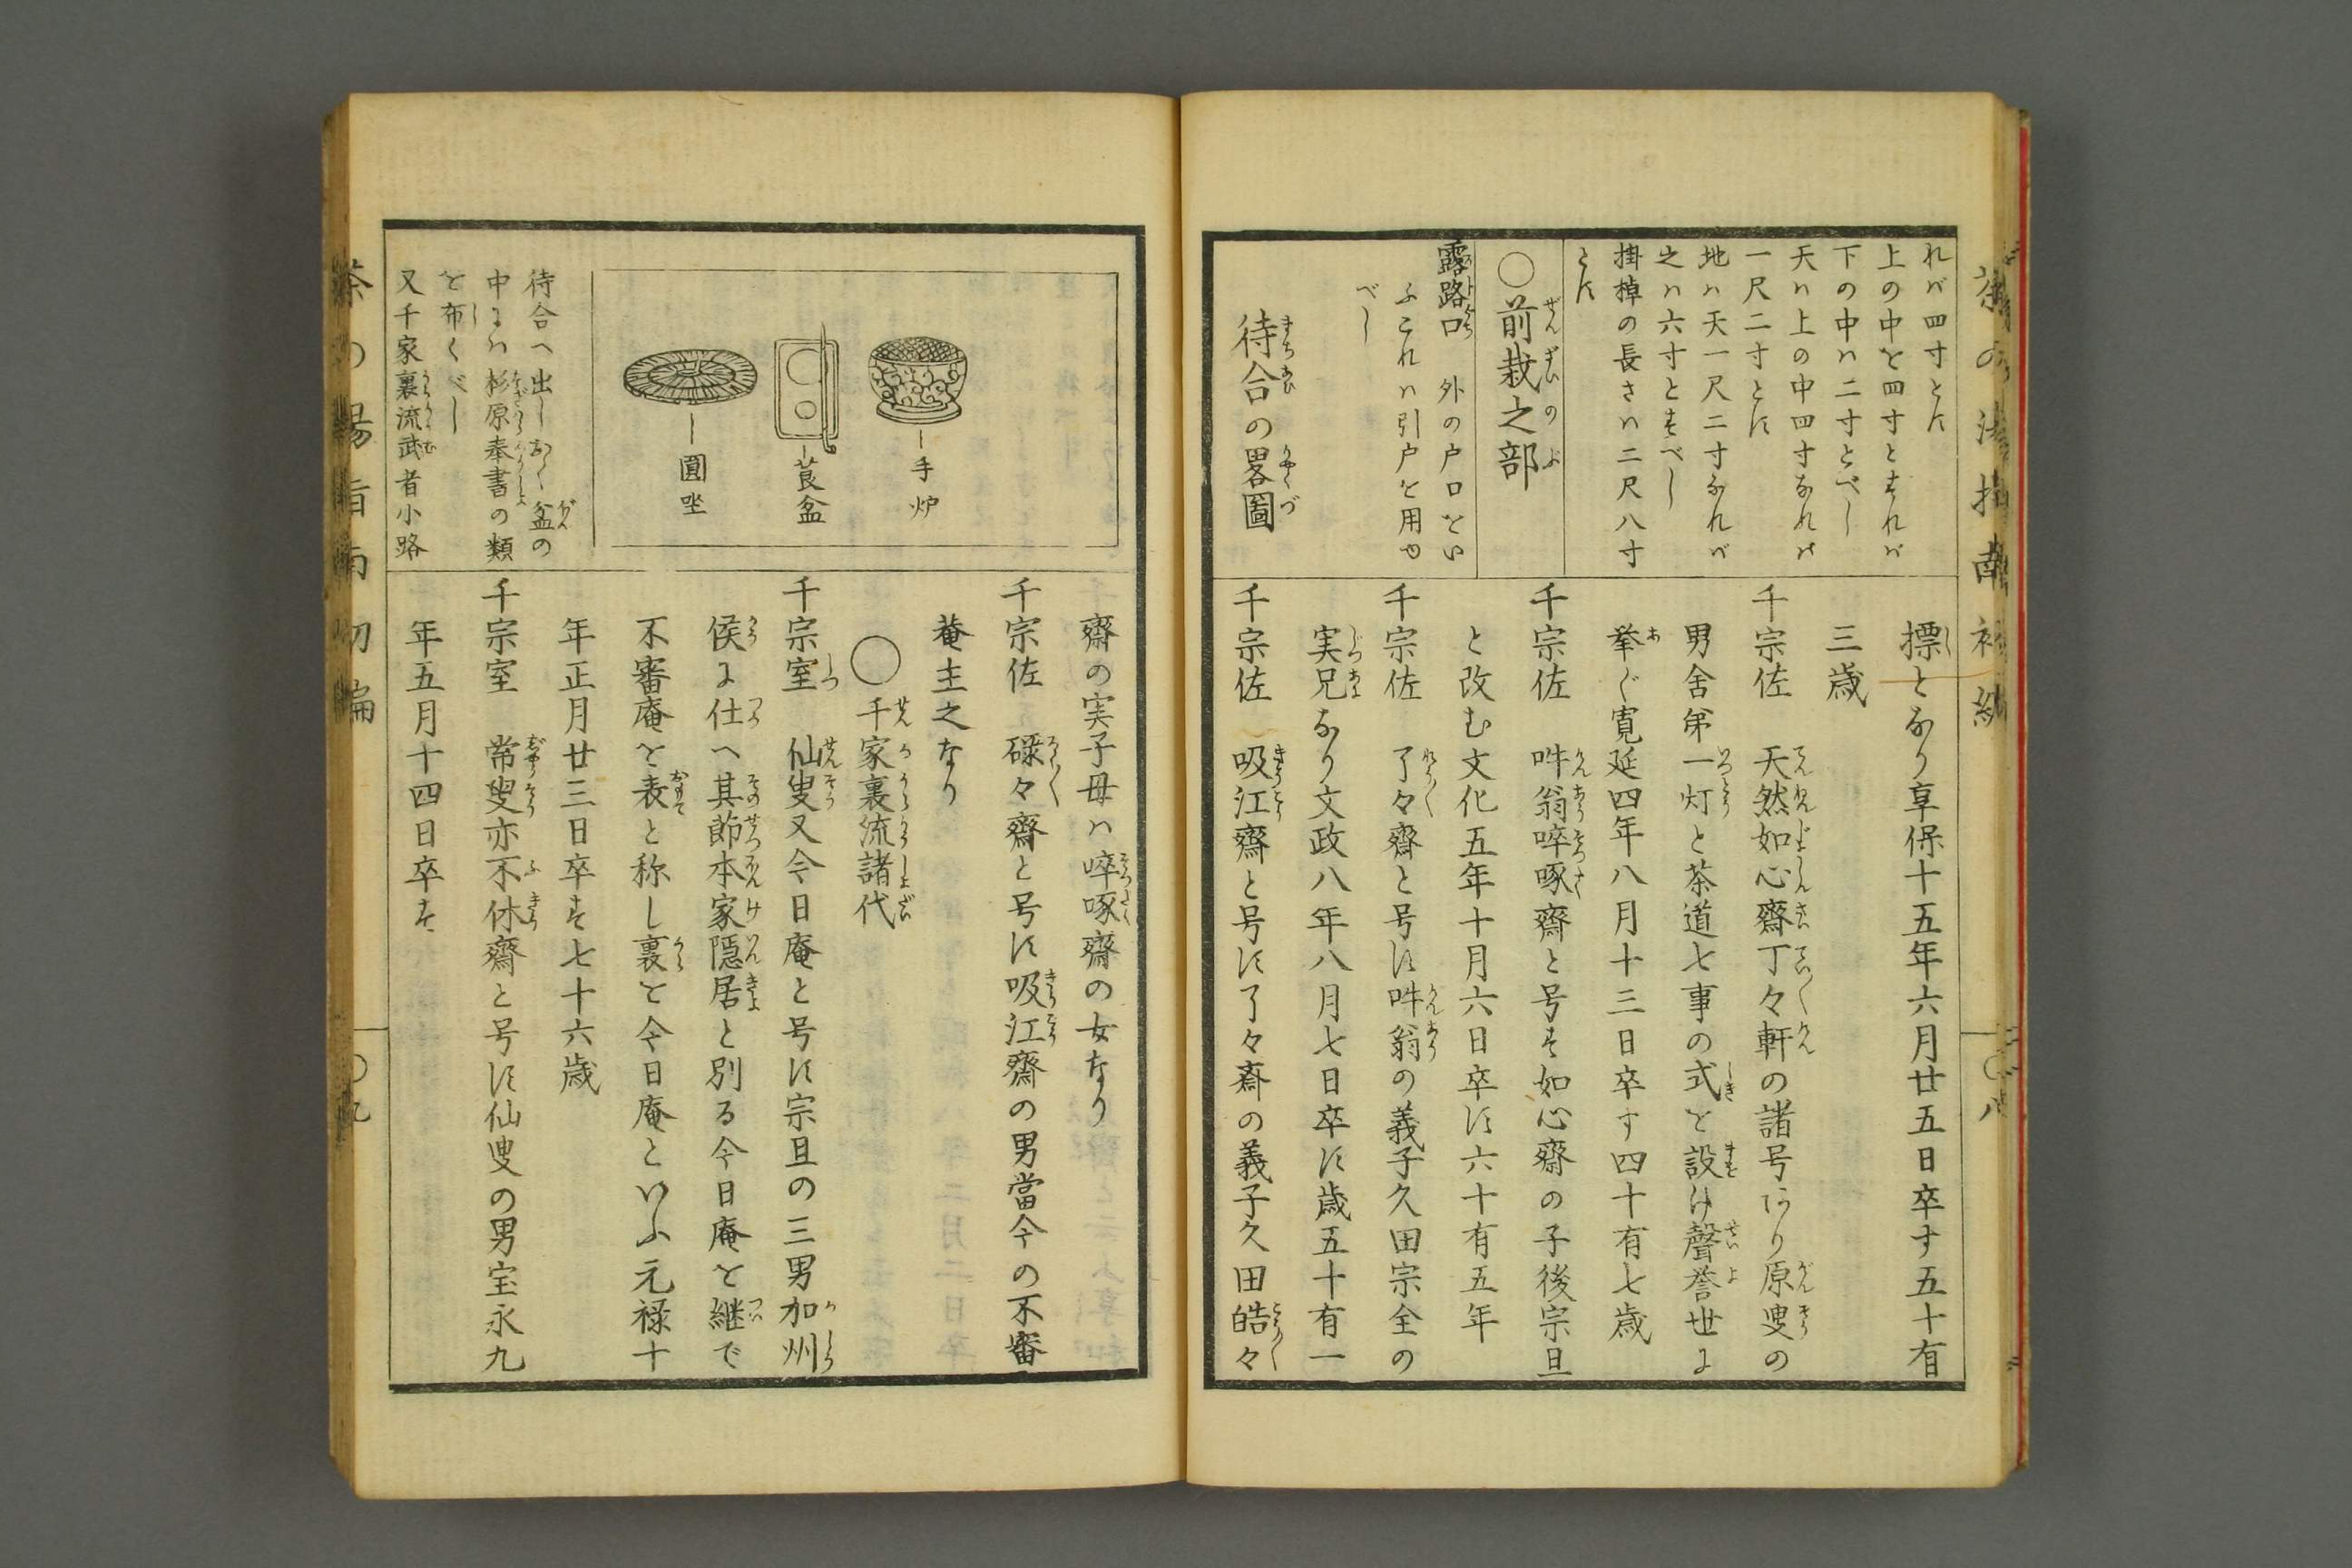 れバ四寸とす
上の中を四寸とすれバ
下の中ハ二寸とべし
天ハ上の中四寸なれバ
一尺二寸とす
地ハ天一尺二寸なれバ
之ハ六寸とすべし
掛棹の長さハ二尺八寸
とす
〇前栽之部
露路口　外の戸口をい
ふこれハ引戸を用ゆ
べし
待合の畧圖
標となり享保十五年六月廿五日卒す五十有
三歳
千宗佐　天然如心齋丁々軒の諸号あり原叟の
男舍弟一灯と茶道七事の式を設け聲誉世に
挙ぐ寛延四年八月十三日卒す四十有七歳
千宗佐　吽翁啐啄齋と号す如心齋の子後宗旦
と改む文化五年十月六日卒す六十有五年
千宗佐　了々齋と号す吽翁の義子久田宗全の
実兄なり文政八年八月七日卒す歳五十有一
千宗佐　吸江齋と号す了々斎の義子久田皓々
〇八
手炉
莨盆
圓坐
待合へ出しおく盆の
中にハ杉原奉書の類
を布くべし
又千家裏流武者小路
齋の実子母ハ啐啄齋の女なり
千宗佐　碌々齋と号す吸江齋の男當今の不審
菴主之なり
〇千家裏流諸代
千宗室　仙叟又今日庵と号す宗旦の三男加州
侯に仕へ其節本家隠居と別る今日庵を継で
不審庵を表と称し裏を今日庵といふ元禄十
年正月廿三日卒す七十六歳
千宗室　常叟亦不休齋と号す仙叟の男宝永九
年五月十四日卒す
茶の湯指南初編
〇九